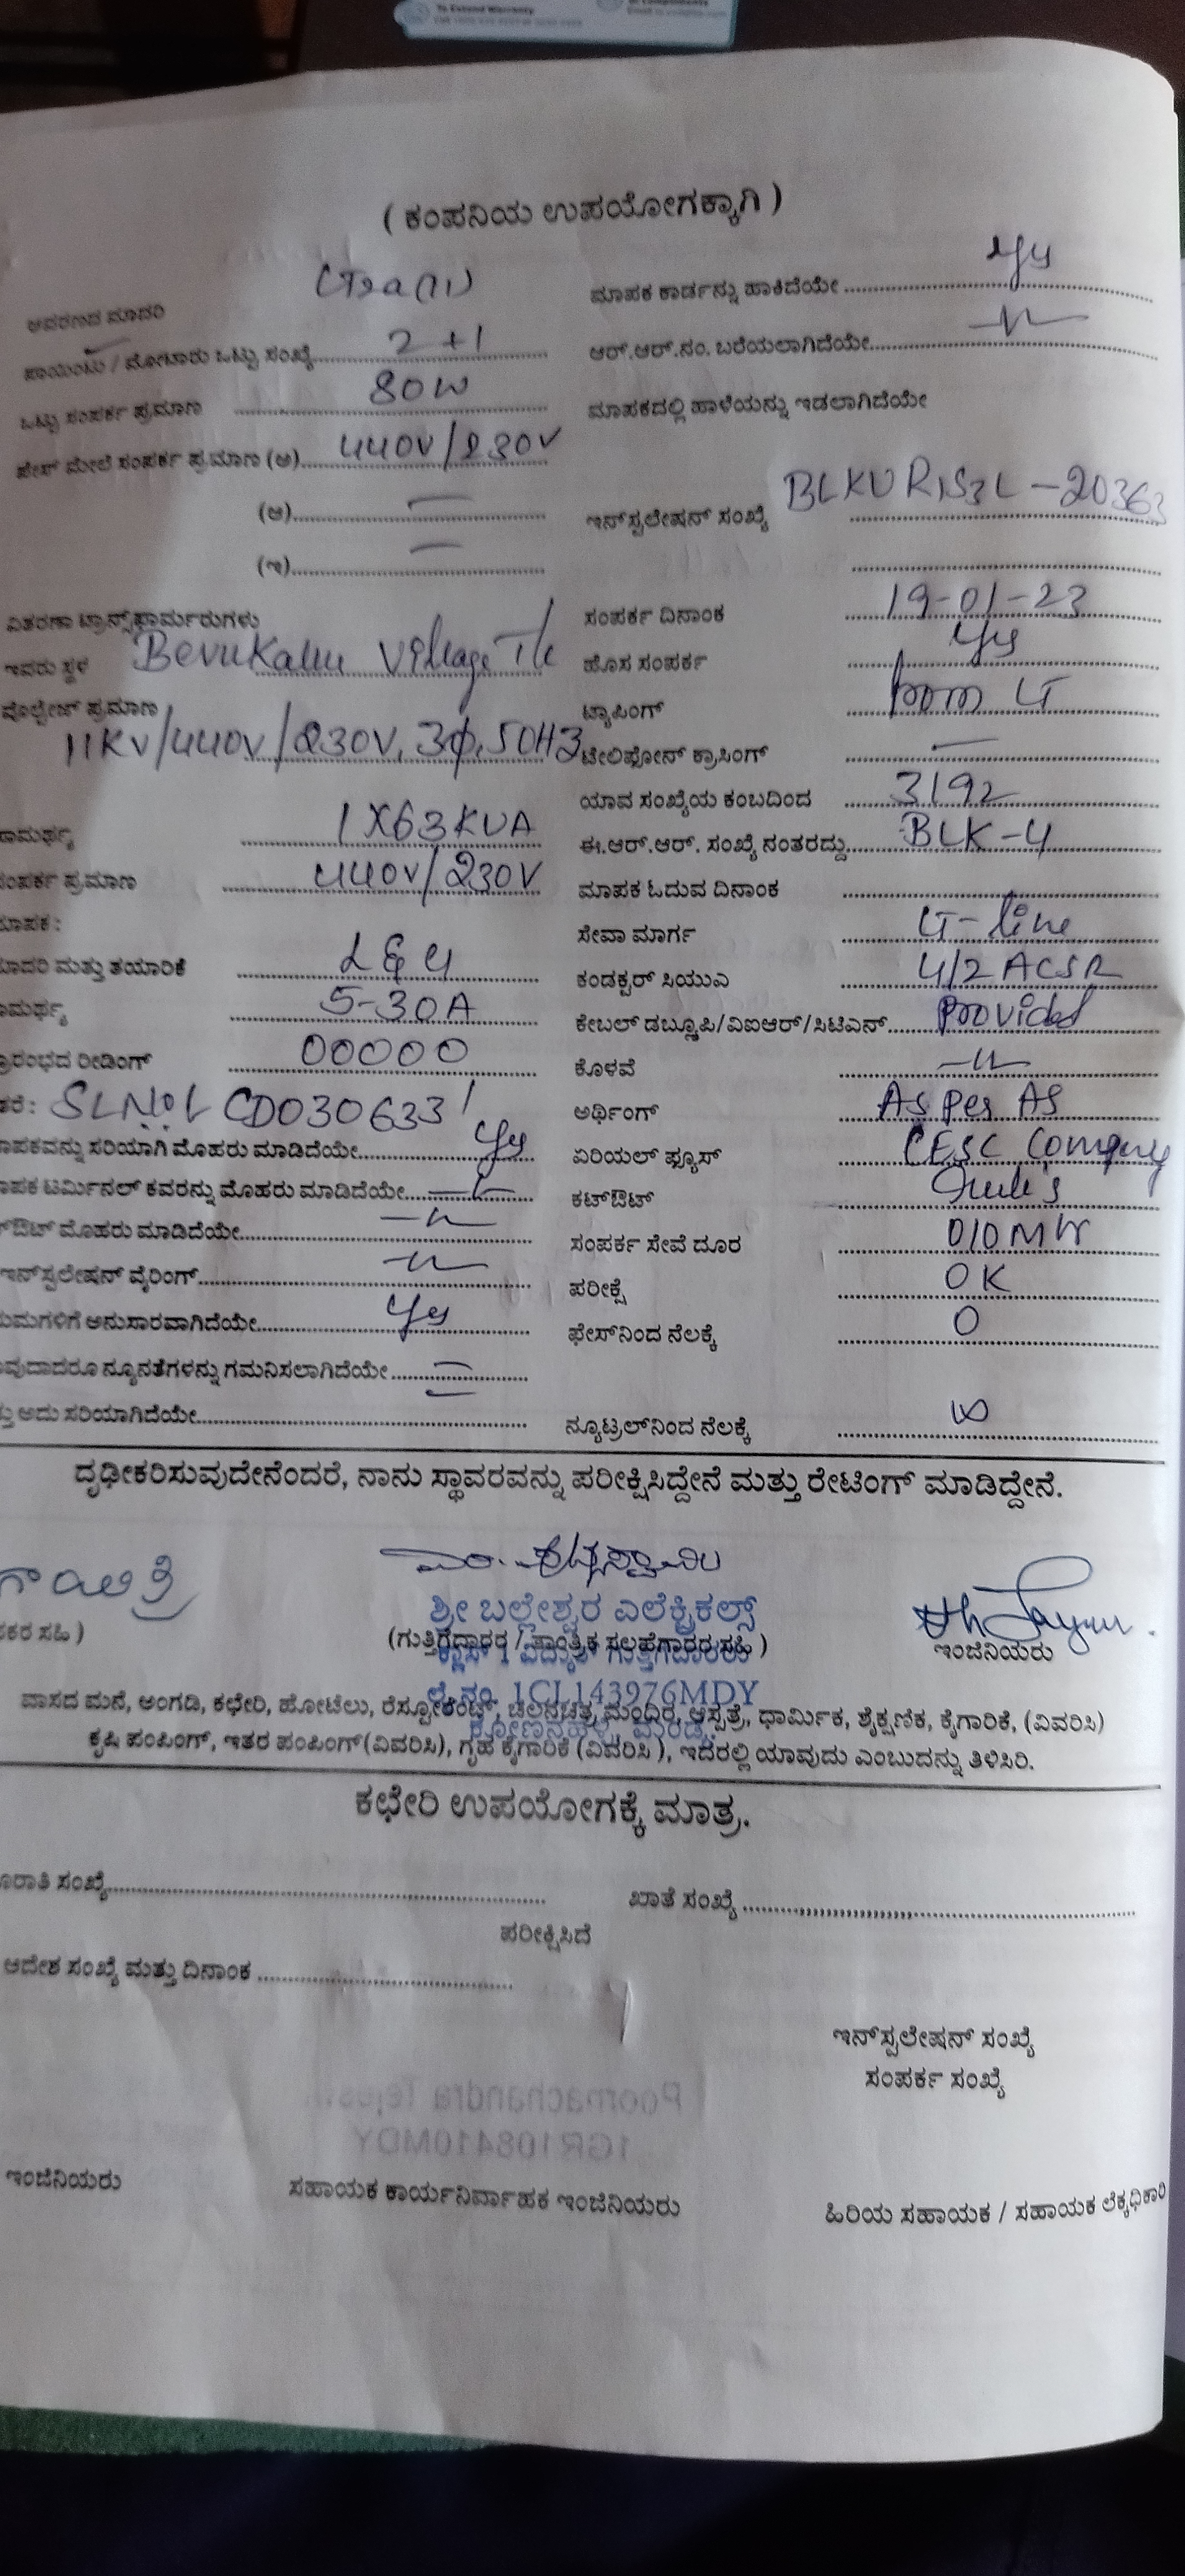 To Extend Warranty
( ಕಂಪನಿಯ ಉಪಯೋಗಕ್ಕಾಗಿ )
ಆವರಣದ ಮಾದರಿ
ಮಾಪಕ ಕಾರ್ಡನ್ನು ಹಾಕಿದೆಯೇ Yes
ಪಾಯಿಂಟು / ಮೋಟಾರು ಒಟ್ಟು ಸಂಖ್ಯೆ 2 +1
ಆರ್.ಆರ್.ನಂ. ಬರೆಯಲಾಗಿದೆಯೇ -"-
ಒಟ್ಟು ಸಂಪರ್ಕ ಪ್ರಮಾಣ 80W
ಮಾಪಕದಲ್ಲಿ ಹಾಳೆಯನ್ನು ಇಡಲಾಗಿದೆಯೇ
ಫೇಸ್ ಮೇಲೆ ಸಂಪರ್ಕ ಪ್ರಮಾಣ (ಅ) 440V/230V
(ಆ) —
ಇನ್‌ಸ್ಟಲೇಷನ್ ಸಂಖ್ಯೆ -20363
(ಇ) —
ವಿತರಣಾ ಟ್ರಾನ್ಸ್‌ಫಾರ್ಮರುಗಳು
ಸಂಪರ್ಕ ದಿನಾಂಕ 19-01-23
ಇವರು ಸ್ಥಳ Village T/c
ಹೊಸ ಸಂಪರ್ಕ Yes
ವೊಲ್ಟೇಜ್ ಪ್ರಮಾಣ
ಟ್ಯಾಪಿಂಗ್ from LT
11KV/440V/230V, 3φ, 50HZ
ಟೇಲಿಫೋನ್ ಕ್ರಾಸಿಂಗ್ —
ಯಾವ ಸಂಖ್ಯೆಯ ಕಂಬದಿಂದ 3192
ಾಮರ್ಥ್ಯ 1X63KVA
ಈ.ಆರ್.ಆರ್. ಸಂಖ್ಯೆ ನಂತರದ್ದು BLK-4
ಸಂಪರ್ಕ ಪ್ರಮಾಣ 440V/230V
ಮಾಪಕ ಓದುವ ದಿನಾಂಕ
ಾಪಕ :
ಸೇವಾ ಮಾರ್ಗ LT-line
ಾದರಿ ಮತ್ತು ತಯಾರಿಕೆ L&G
ಕಂಡಕ್ಟರ್ ಸಿಯುಎ 4/2 ACSR
ಾಮರ್ಥ್ಯ 5-30A
ಕೇಬಲ್ ಡಬ್ಲ್ಯೂಪಿ/ವಿಐಆರ್/ಸಿಟಿಎನ್ Provided
್ರಾರಂಭದ ರೀಡಿಂಗ್ 00000
ಕೊಳವೆ -"-
ತರೆ : CD030633
ಅರ್ಥಿಂಗ್ As Per AS
ಾಪಕವನ್ನು ಸರಿಯಾಗಿ ಮೊಹರು ಮಾಡಿದೆಯೇ Yes
ಏರಿಯಲ್ ಫ್ಯೂಸ್ CESC Company
ಾಪಕ ಟರ್ಮಿನಲ್ ಕವರನ್ನು ಮೊಹರು ಮಾಡಿದೆಯೇ -"-
ಕಟ್‌ಔಟ್ Rule's
್‌ಔಟ್ ಮೊಹರು ಮಾಡಿದೆಯೇ -"-
ಸಂಪರ್ಕ ಸೇವೆ ದೂರ 010
ಇನ್‌ಸ್ಟಲೇಷನ್ ವೈರಿಂಗ್ -"-
ಪರೀಕ್ಷೆ OK
ಯಮಗಳಿಗೆ ಅನುಸಾರವಾಗಿದೆಯೇ Yes
ಫೇಸ್‌ನಿಂದ ನೆಲಕ್ಕೆ 0
ಾವುದಾದರೂ ನ್ಯೂನತೆಗಳನ್ನು ಗಮನಿಸಲಾಗಿದೆಯೇ —
ತ್ತು ಅದು ಸರಿಯಾಗಿದೆಯೇ
ನ್ಯೂಟ್ರಲ್‌ನಿಂದ ನೆಲಕ್ಕೆ ∞
ದೃಢೀಕರಿಸುವುದೇನೆಂದರೆ, ನಾನು ಸ್ಥಾವರವನ್ನು ಪರೀಕ್ಷಿಸಿದ್ದೇನೆ ಮತ್ತು ರೇಟಿಂಗ್ ಮಾಡಿದ್ದೇನೆ.
ಗಾಯಿತ್ರಿ
ಕರ ಸಹಿ )
ಶ್ರೀ ಬಲ್ಲೇಶ್ವರ ಎಲೆಕ್ಟ್ರಿಕಲ್ಸ್
(ಗುತ್ತಿಗೆದಾರರ / ತಾಂತ್ರಿಕ ಸಲಹೆಗಾರರ ಸಹಿ )
ಇಂಜಿನಿಯರು
ಕ್ಲಾಸ್ 1 ವಿದ್ಯುತ್ ಗುತ್ತಿಗೆದಾರರು
ಲೈ.ನಂ. 1CL143976MDY
ವಾಸದ ಮನೆ, ಅಂಗಡಿ, ಕಛೇರಿ, ಹೋಟೆಲು, ರೆಸ್ಟೋರೆಂಟ್, ಚಲನಚಿತ್ರ ಮಂದಿರ, ಆಸ್ಪತ್ರೆ, ಧಾರ್ಮಿಕ, ಶೈಕ್ಷಣಿಕ, ಕೈಗಾರಿಕೆ, (ವಿವರಿಸಿ)
ಕೃಷಿ ಪಂಪಿಂಗ್, ಇತರ ಪಂಪಿಂಗ್(ವಿವರಿಸಿ), ಗೃಹ ಕೈಗಾರಿಕೆ (ವಿವರಿಸಿ ), ಇದರಲ್ಲಿ ಯಾವುದು ಎಂಬುದನ್ನು ತಿಳಿಸಿರಿ.
ಕಛೇರಿ ಉಪಯೋಗಕ್ಕೆ ಮಾತ್ರ.
ಸಂಖ್ಯೆ
ಖಾತೆ ಸಂಖ್ಯೆ
ಪರೀಕ್ಷಿಸಿದೆ
ಆದೇಶ ಸಂಖ್ಯೆ ಮತ್ತು ದಿನಾಂಕ
ಇನ್‌ಸ್ಟಲೇಷನ್ ಸಂಖ್ಯೆ
ಸಂಪರ್ಕ ಸಂಖ್ಯೆ
ಇಂಜಿನಿಯರು
ಸಹಾಯಕ ಕಾರ್ಯನಿರ್ವಾಹಕ ಇಂಜಿನಿಯರು
ಹಿರಿಯ ಸಹಾಯಕ / ಸಹಾಯಕ ಲೆಕ್ಕಧಿಕಾರಿ